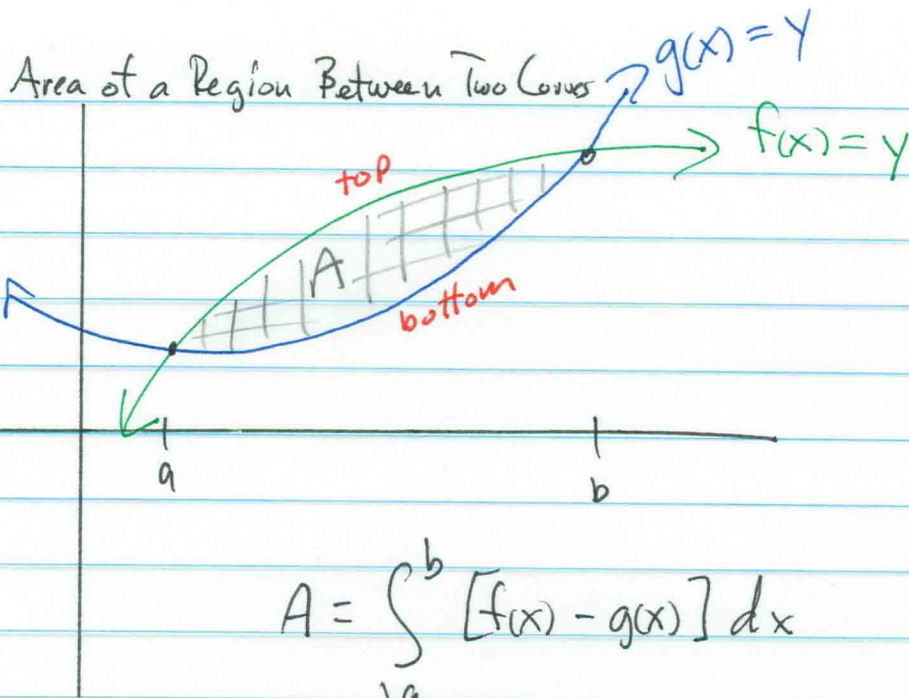 Area of a Region Between Two Curves
g(x) = y
f(x) = y
top
A
bottom
a
b
A = ∫_a^b [f(x) - g(x)] dx